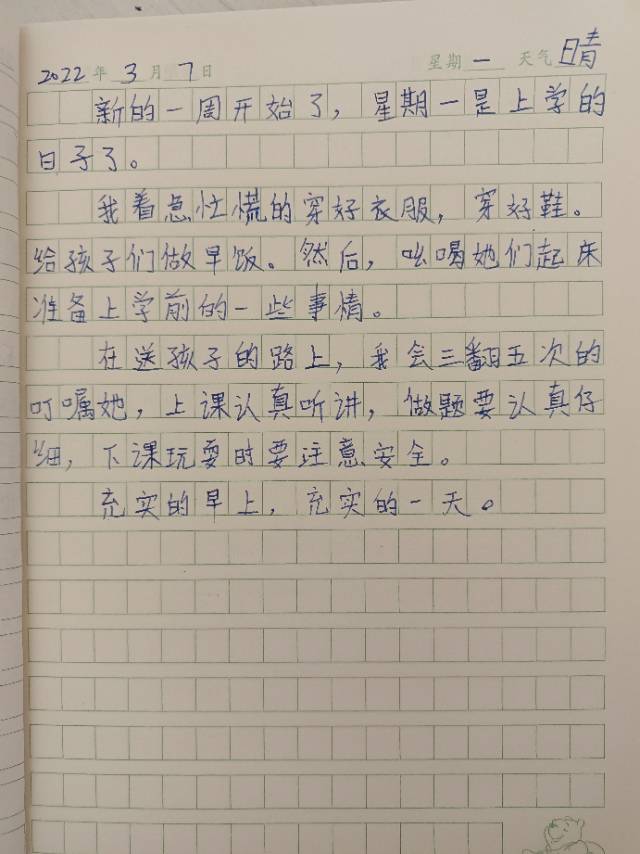 2022年3月7日 星期一 天气晴
新的一周开始了，星期一是上学的
日子了。
我着急忙慌的穿好衣服，穿好鞋。
给孩子们做早饭。然后，吆喝她们起床
准备上学前的一些事情。
在送孩子的路上，我会三翻五次的
叮嘱她，上课认真听讲，做题要认真仔
细，下课玩耍时要注意安全。
充实的早上，充实的一天。